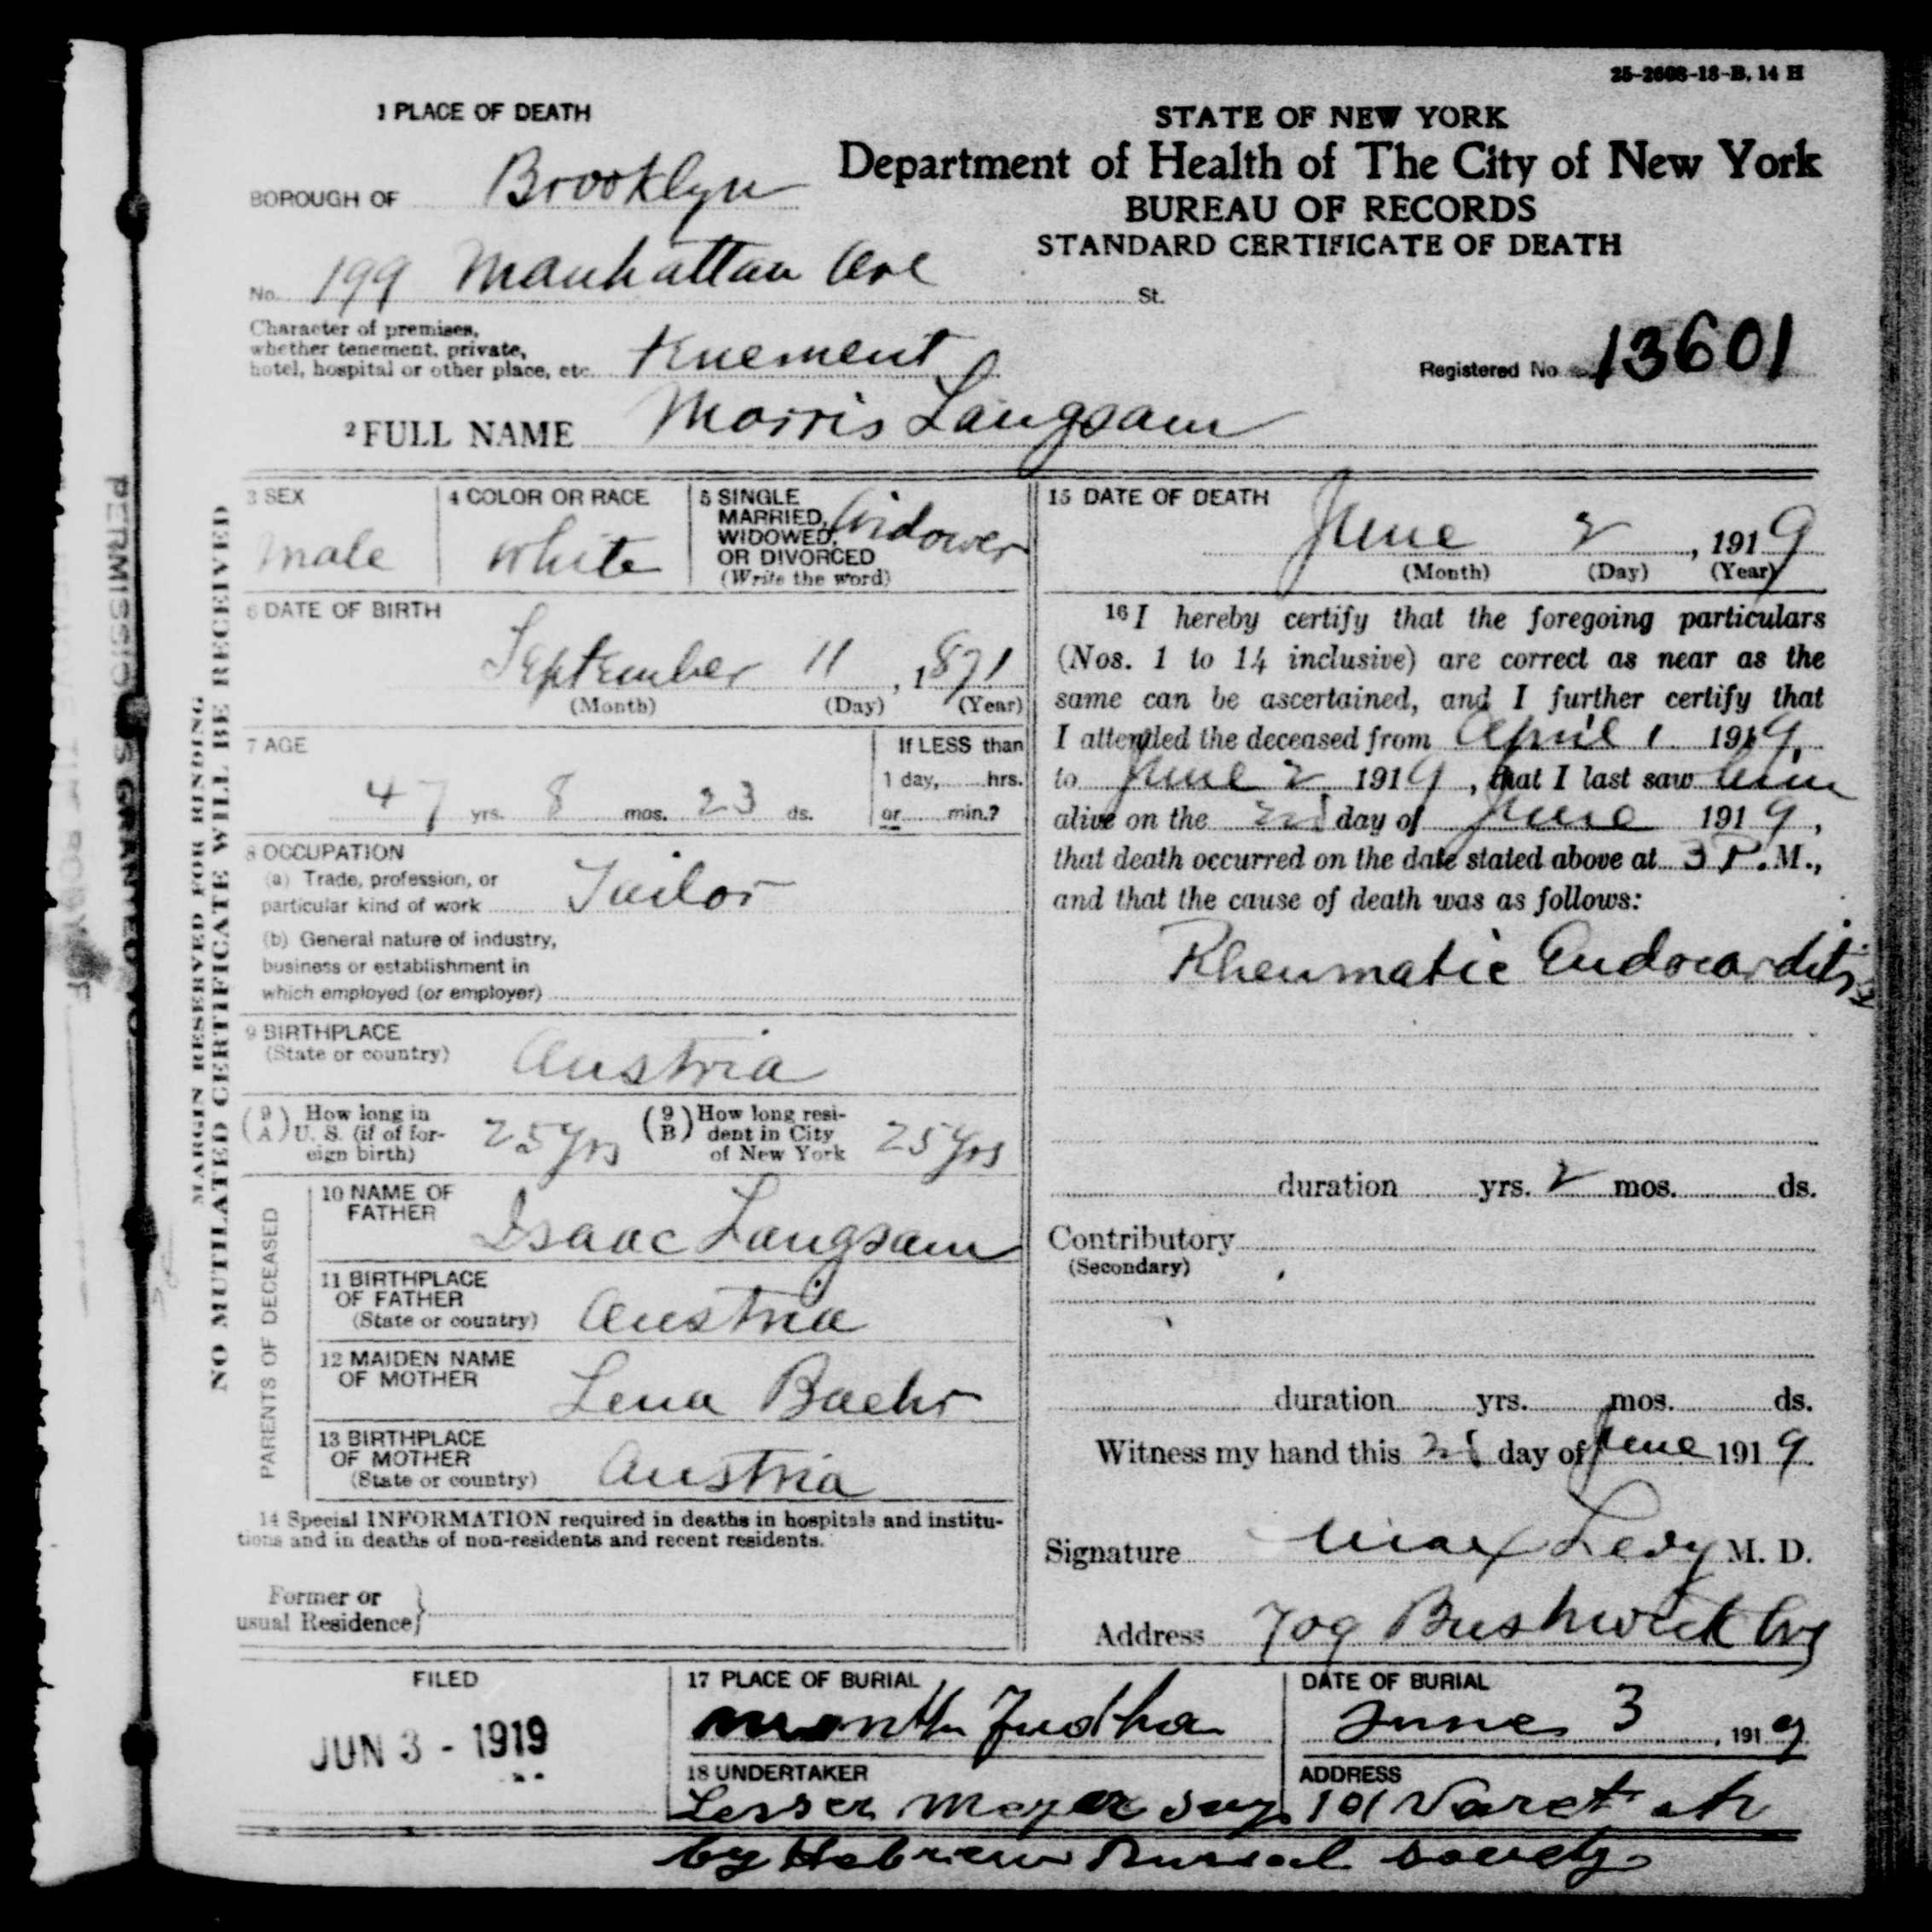 25-2608-18-B, 14 H
1 PLACE OF DEATH
STATE OF NEW YORK
Department of Health of The City of New York
BUREAU OF RECORDS
STANDARD CERTIFICATE OF DEATH
BOROUGH OF Brooklyn
No. 199 Manhattan Ave St.
Character of premises,
whether tenement, private,
hotel, hospital or other place, etc. tenement
Registered No. 13601
2 FULL NAME Morris Langsam
3 SEX
male
4 COLOR OR RACE
white
5 SINGLE
MARRIED,
WIDOWED,
OR DIVORCED
(Write the word)
Widower
6 DATE OF BIRTH
September 11, 1871
(Month) (Day) (Year)
7 AGE
47 yrs. 8 mos. 23 ds.
If LESS than
1 day, hrs.
or min.?
8 OCCUPATION
(a) Trade, profession, or
particular kind of work Tailor
(b) General nature of industry,
business or establishment in
which employed (or employer)
9 BIRTHPLACE
(State or country)
Austria
(9 A) How long in
U. S. (if of for-
eign birth)
25 yrs
(9 B) How long resi-
dent in City
of New York
25 yrs
PARENTS OF DECEASED
10 NAME OF
FATHER
Isaac Langsam
11 BIRTHPLACE
OF FATHER
(State or country)
Austria
12 MAIDEN NAME
OF MOTHER
Lena Baehr
13 BIRTHPLACE
OF MOTHER
(State or country)
Austria
14 Special INFORMATION required in deaths in hospitals and institu-
tions and in deaths of non-residents and recent residents.
Former or
usual Residence
15 DATE OF DEATH
June 2, 1919
(Month) (Day) (Year)
16 I hereby certify that the foregoing particulars
(Nos. 1 to 14 inclusive) are correct as near as the
same can be ascertained, and I further certify that
I attended the deceased from April 1 1919,
to June 2 1919, that I last saw him
alive on the 2d day of June 1919,
that death occurred on the date stated above at 3 P.M.,
and that the cause of death was as follows:
Rheumatic Endocarditis
duration yrs. 2 mos. ds.
Contributory
(Secondary)
duration yrs. mos. ds.
Witness my hand this 2d day of June 1919
Signature Max Levy M. D.
Address 709 Bushwick Av
FILED
JUN 3 - 1919
17 PLACE OF BURIAL
DATE OF BURIAL
June 3, 1919
18 UNDERTAKER
Lesser
ADDRESS
101 Varet st
by Hebrew Burial Society
MARGIN RESERVED FOR BINDING
NO MUTILATED CERTIFICATE WILL BE RECEIVED